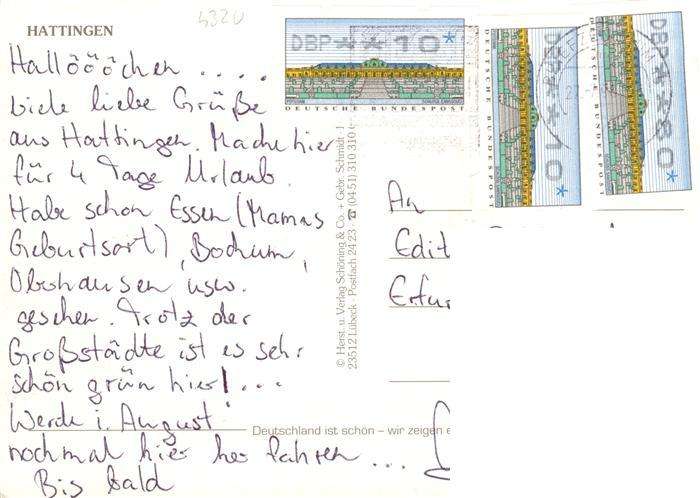 HATTINGEN
4320
Hallöööchen ....
viele liebe Grüße
aus Hattingen. Mache hier
für 4 Tage Urlaub.
Habe schon Essen (Mamas
Geburtsort), Bochum,
Oberhausen usw.
gesehen. Trotz der
Großstädte ist es sehr
schön grün hier! ...
Werde i. August
nochmal hier her fahren ...
Bis bald
Deutschland ist schön – wir zeigen e
© Herst. u. Verlag Schöning & Co. + Gebr. Schmidt
23512 Lübeck · Postfach 24 23 · ☎ (04 51) 310 310
DBP ** 10*
DEUTSCHE BUNDESPOST
DBP ** 10*
DEUTSCHE BUNDESPOST
DBP ** 80*
DEUTSCHE BUNDESPOST
An
Edit
Erfur